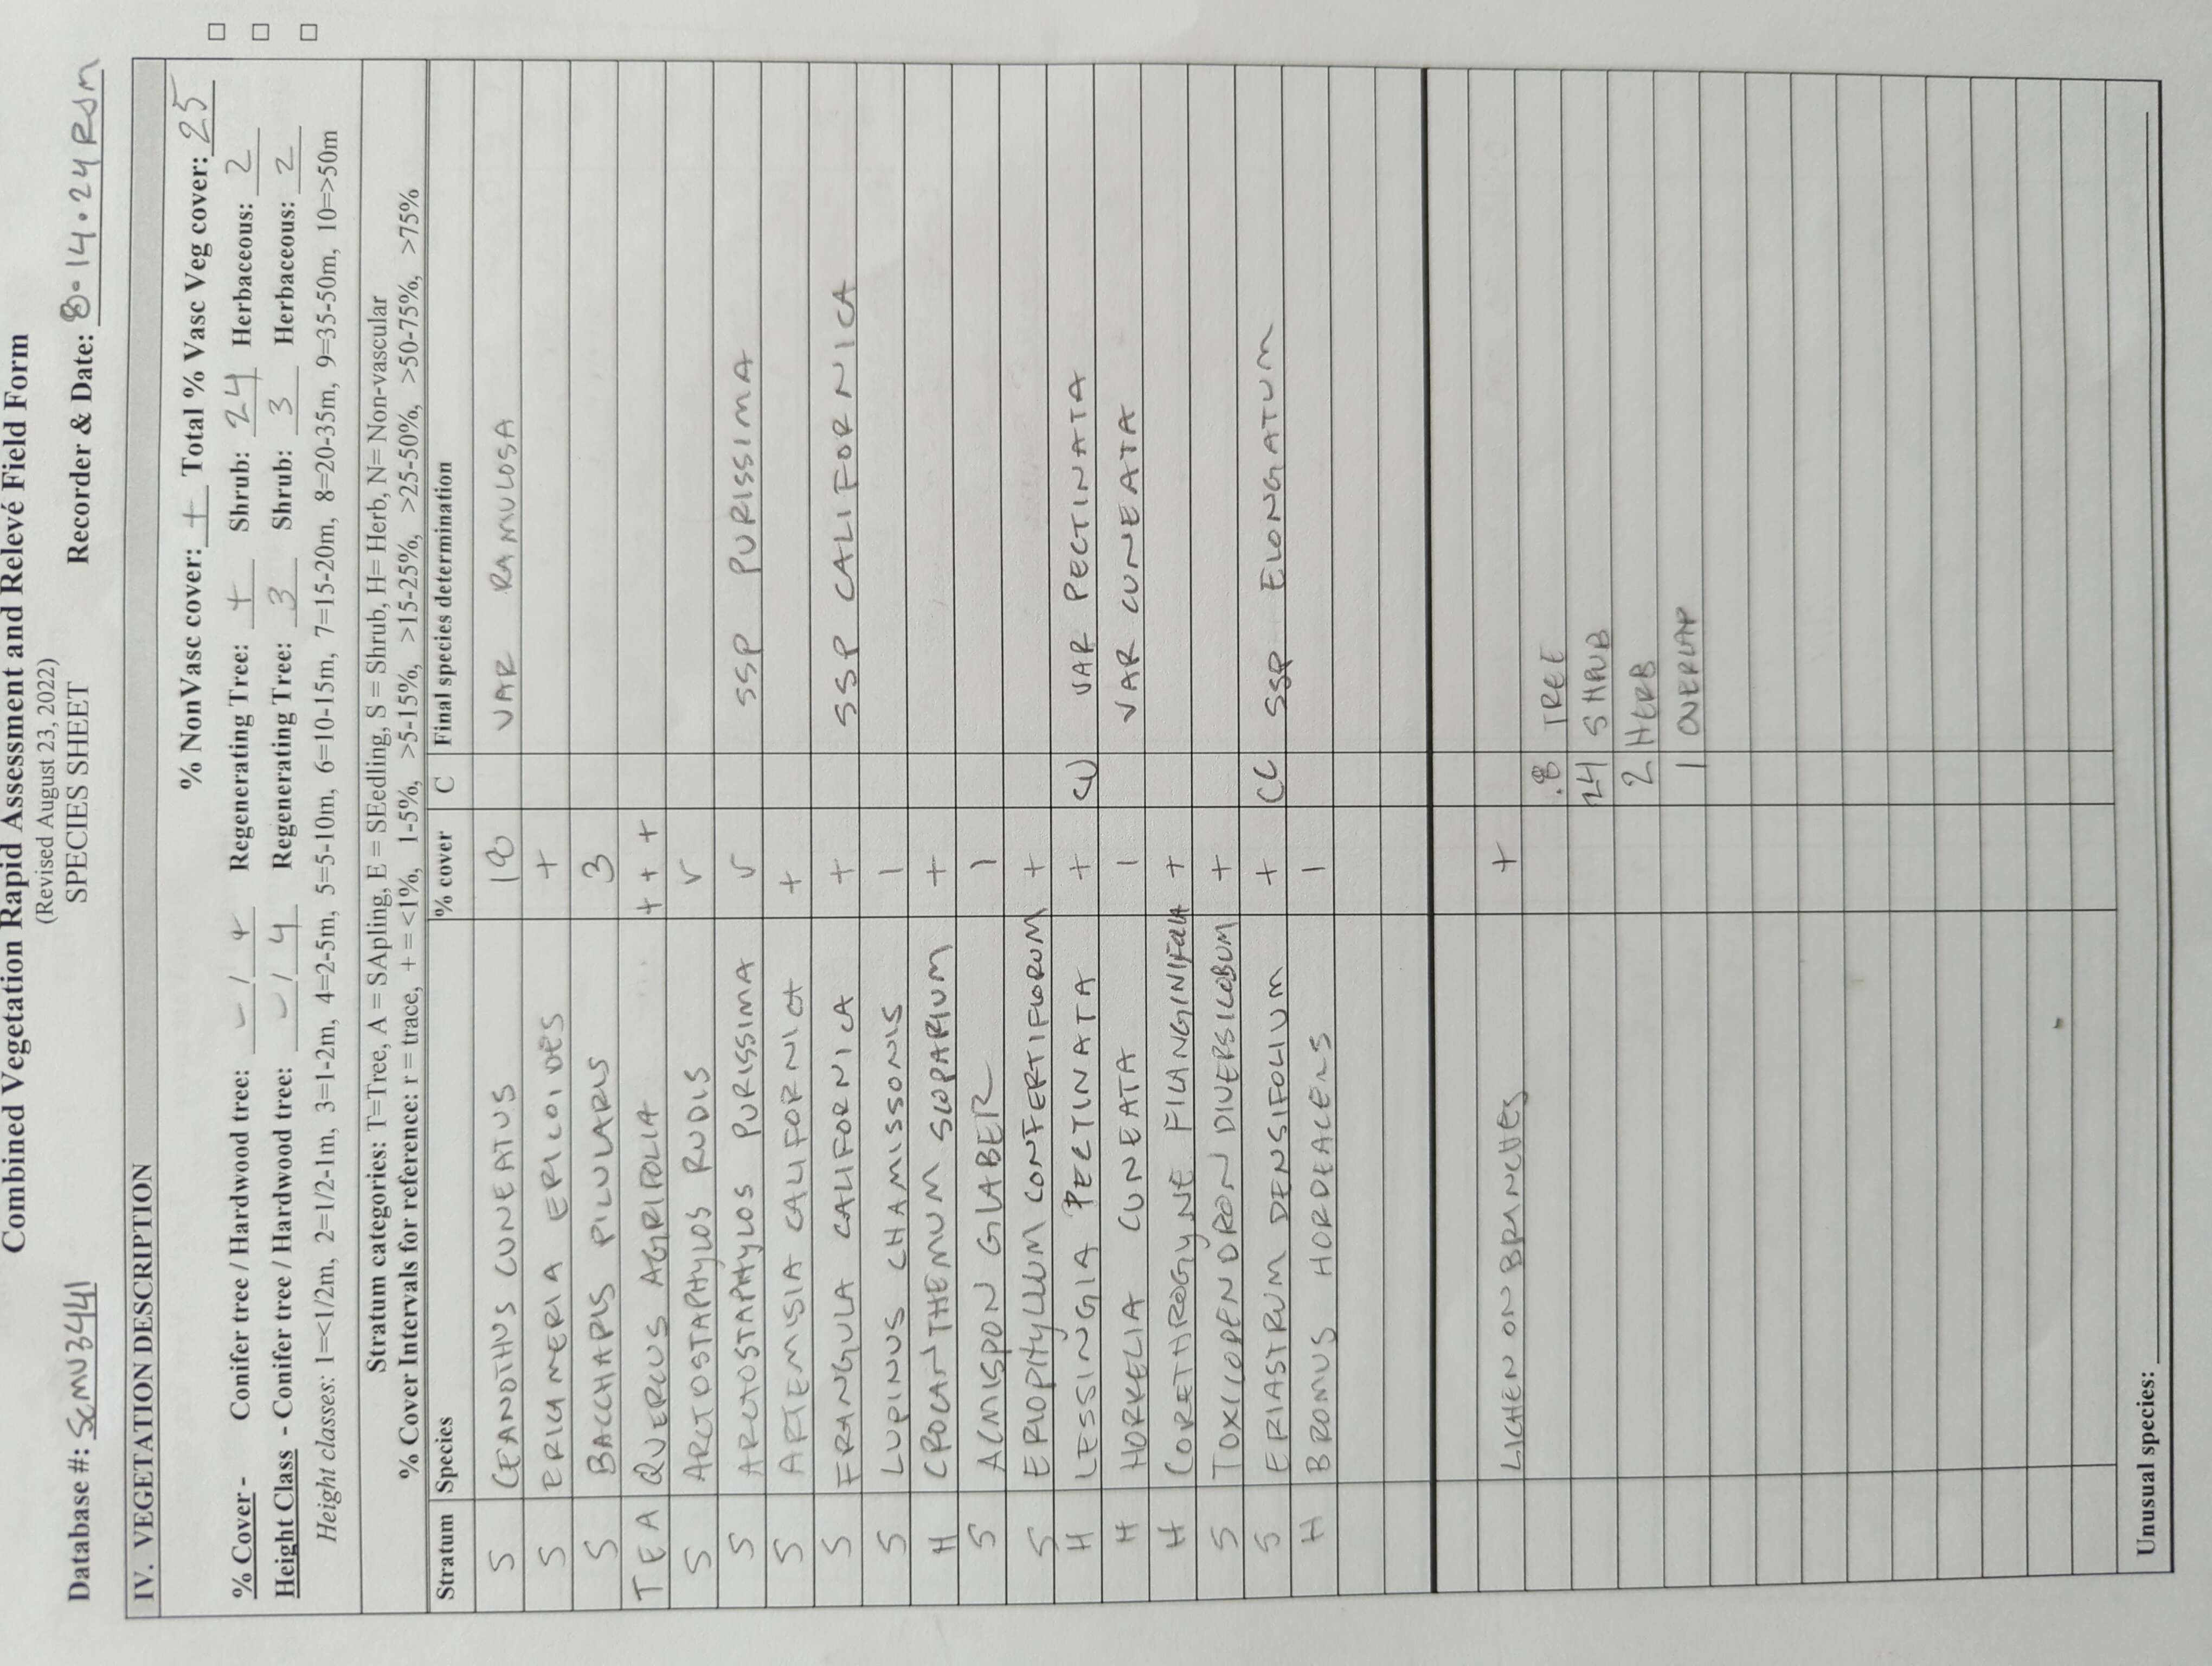 Combined Vegetation Rapid Assessment and Relevé Field Form
(Revised August 23, 2022)
SPECIES SHEET
Database #: SCMV3441 Recorder & Date: 8·14·24 RSM
IV. VEGETATION DESCRIPTION
% NonVasc cover: + Total % Vasc Veg cover: 25
% Cover - Conifer tree / Hardwood tree: - / + Regenerating Tree: + Shrub: 24 Herbaceous: 2
Height Class - Conifer tree / Hardwood tree: - / 4 Regenerating Tree: 3 Shrub: 3 Herbaceous: 2
Height classes: 1=<1/2m, 2=1/2-1m, 3=1-2m, 4=2-5m, 5=5-10m, 6=10-15m, 7=15-20m, 8=20-35m, 9=35-50m, 10=>50m
Stratum categories: T=Tree, A = SApling, E = SEedling, S = Shrub, H= Herb, N= Non-vascular
% Cover Intervals for reference: r = trace, + = <1%, 1-5%, >5-15%, >15-25%, >25-50%, >50-75%, >75%
Stratum Species % cover C Final species determination
S CEANOTHUS CUNEATUS 18 VAR RAMULOSA
S ERICAMERIA ERICOIDES +
S BACCHARIS PILULARIS 3
T E A QUERCUS AGRIFOLIA + + +
S ARCTOSTAPHYLOS RUDIS
S ARCTOSTAPHYLOS PURISSIMA SSP PURISSIMA
S ARTEMISIA CALIFORNICA +
S FRANGULA CALIFORNICA + SSP CALIFORNICA
S LUPINUS CHAMISSONIS 1
H CROCANTHEMUM SCOPARIUM +
S ACMISPON GLABER 1
S ERIOPHYLLUM CONFERTIFLORUM +
H LESSINGIA PECTINATA + VAR PECTINATA
H HORKELIA CUNEATA 1 VAR CUNEATA
H CORETHROGYNE FILANGINIFOLIA +
S TOXICOPENDRON DIVERSILOBUM +
S ERIASTRUM DENSIFOLIUM + CC SSP ELONGATUM
H BROMUS HORDEACEUS 1
LICHEN ON BRANCHES +
.8 TREE
24 SHRUB
2 HERB
1 OVERLAP
Unusual species: